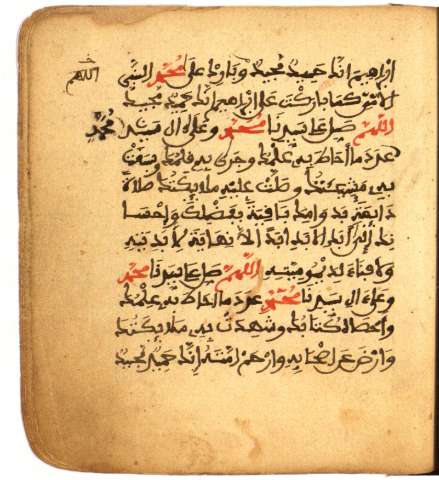 ابراهيم انك حميد مجيد وبارك على محمد النبي
الامي كما باركت على ابراهيم انك حميد مجيد
اللهم صل على سيدنا محمد وعلى ال سيدنا محمد
عدد ما احاط به علمك وجرى به قلمك وسبقت
به مشيئتك وصلت عليه ملائكتك صلاة
دايمة بدوامك باقية بفضلك واحسا
نك الى ابد الابد ابدا لا نهاية لابديته
ولا فناء لديموميته اللهم صل على سيدنا محمد
وعلى ال سيدنا محمد عدد ما احاط به علمك
واحصاه كتابك وشهدت به ملائكتك
وارض عن اصحابه وارحم امته انك حميد مجيد
اللهم